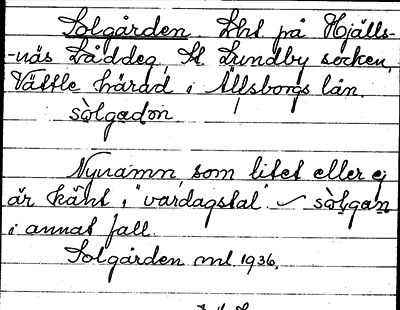 Solgården. Lht på Hjälls-
-näs Låddeg, St. Lundby socken,
Vättle härad i Älfsborgs län.
sòlgaḍọn
Nynamn, som litet eller ej
är känt i "vardagstal" sòlgan
i annat fall.
Solgården ml 1936.